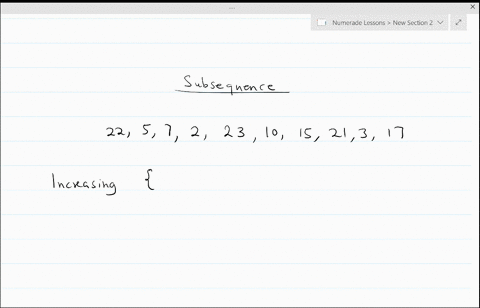 Numerade Lessons > New Section 2
Subsequence
22, 5, 7, 2, 23, 10, 15, 21, 3, 17
Increasing {